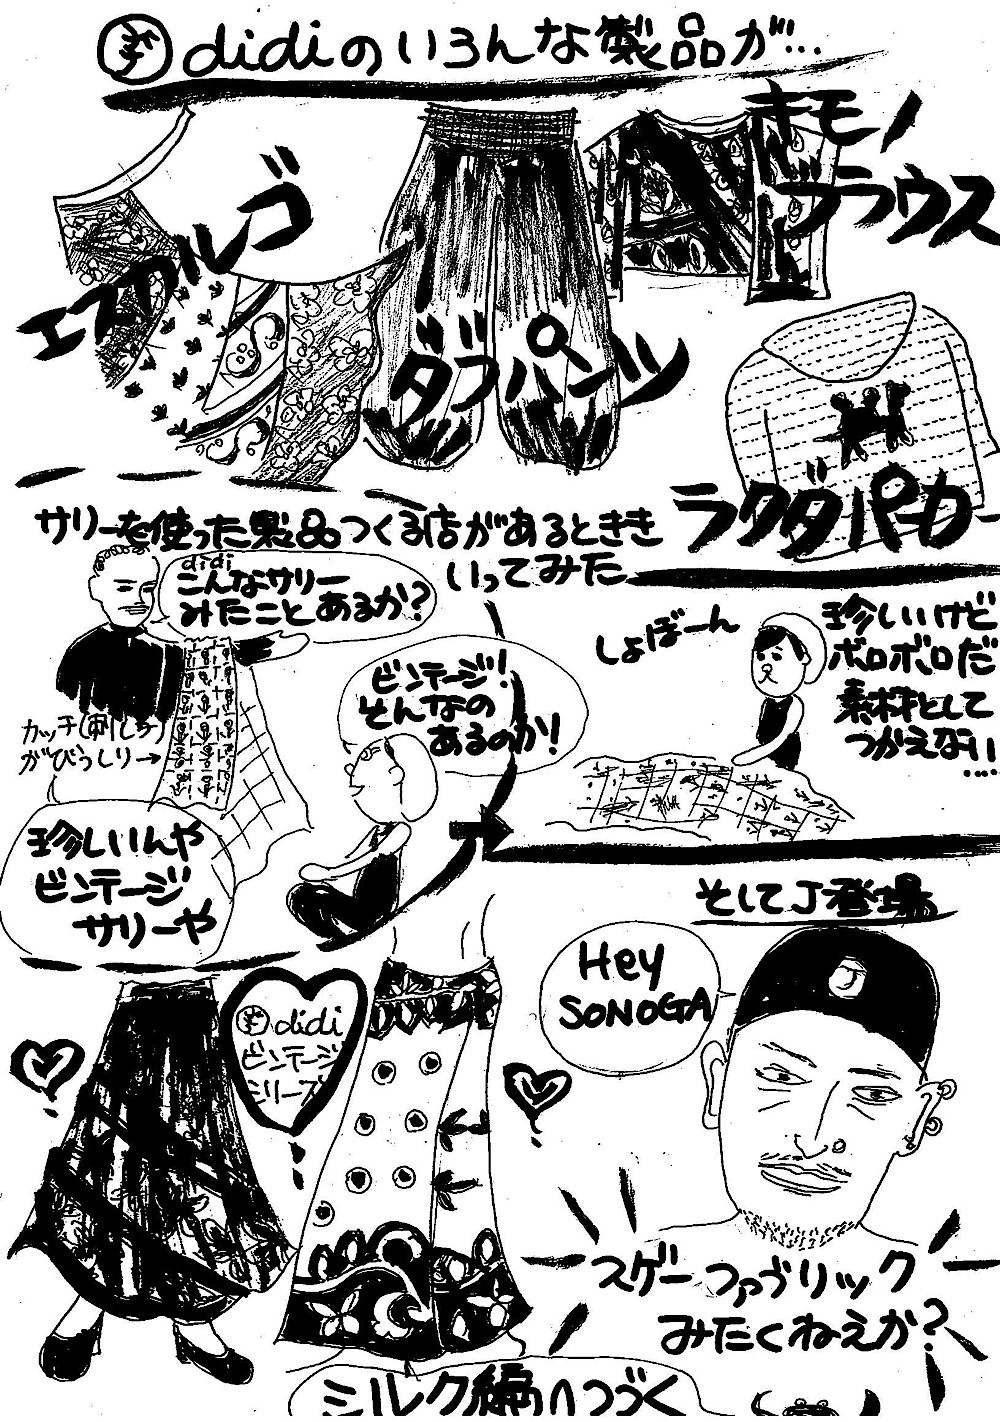 didiのいろんな製品が…
キモノ
ブラウス
エスカルゴ
ダブパンツ
ラクダパーカー
サリーを使った製品つくる店があるとききいってみた
didi
こんなサリー
みたことあるか?
カッチ(刺し子)
がびっしり→
ビンテージ!
そんなの
あるのか!
珍しいんや
ビンテージ
サリーや
しょぼーん
珍しいけど
ボロボロだ
素材として
つかえない
....
そしてJ登場
Hey
SONOGA
didi
ビンテージ
シリーズ
スゲーファブリック
みたくねえか?
ミルク編へつづく